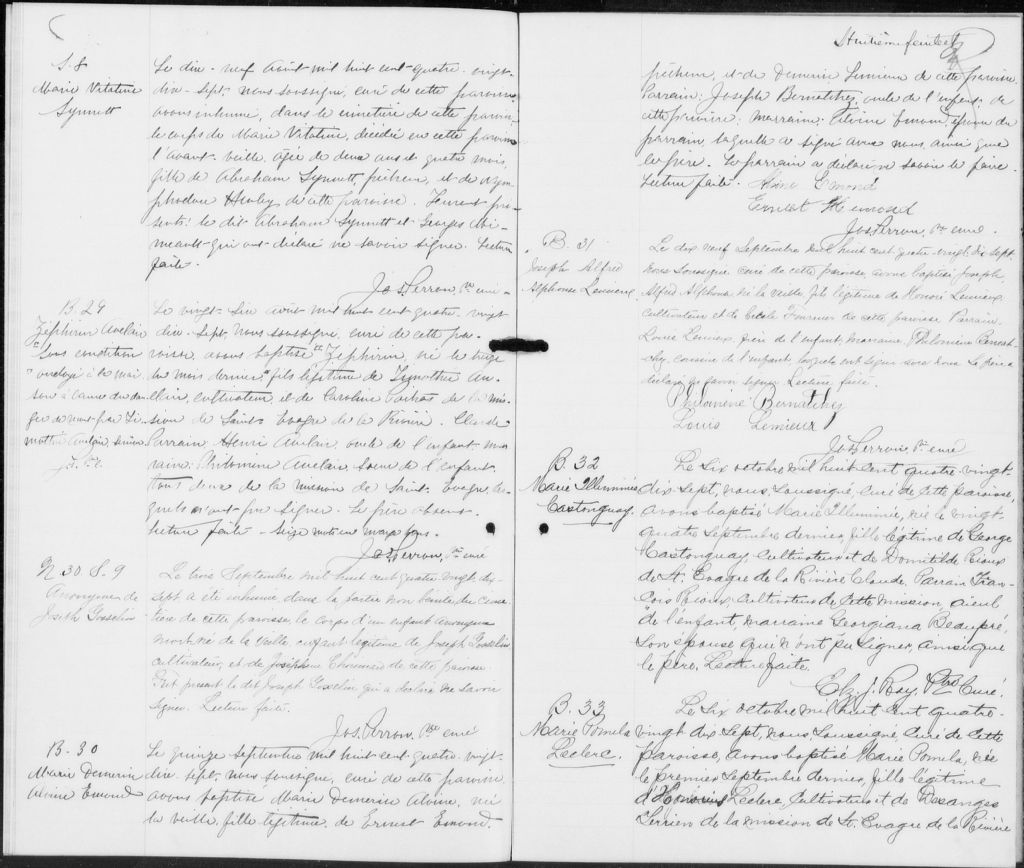 S. 8
Marie Vitaline
Synnett
Le dix-neuf Août mil huit cent quatre-vingt-
dix-sept, Nous soussigné, curé de cette paroisse
avons inhumé, dans le cimetière de cette paroisse
le corps de Marie Vitaline, décédée en cette paroisse
l'avant-veille, âgée de deux ans et quatre mois,
fille de Abraham Synnett, pêcheur, et de Nym-
phodore Henley de cette paroisse. Furent pré-
sents: le dit Abraham Synnett et Georges
qui ont déclaré ne savoir signer. Lecture
faite.
Jos. Perron, Ptre curé
B. 29
Zéphirin Auclair
"sous condition
ondoyé à la mai-
son à cause du dan-
ger de mort par Ti-
mothée Auclair,
J. P. Ptre
Le vingt-six août mil huit cent quatre-vingt
dix-sept, nous soussigné, curé de cette pa-
roisse, avons baptisé Zéphirin, né le treize
du mois dernier, fils légitime de Timothée Au-
clair, cultivateur, et de Caroline de la mis-
sion de Saint-Evagre de la Rivière Claude
Parrain Henri Auclair oncle de l'enfant mar-
raine: Philomène Auclair, soeur de l'enfant
tous deux de la mission de Saint-Evagre, les-
quels n'ont pu signer. Le père absent.
Lecture faite. Seize mots en marge bons.
Jos. Perron, Ptre curé
N 30 S. 9
Anonyme de
Joseph Gosselin
Le trois Septembre mil huit cent quatre vingt dix
sept a été inhumé dans la partie non bénite du cime-
tière de cette paroisse, le corps d'un enfant anonyme
mort né de la veille enfant légitime de Joseph Gosselin
cultivateur, et de Joséphine de cette paroisse.
Fut présent le dit Joseph Gosselin qui a déclaré ne savoir
signer. Lecture faite.
Jos. Perron, Ptre curé
B. 30
Marie Demerise
Alvine Emond
Le quinze Septembre mil huit cent quatre-vingt-
dix-sept, nous soussigné, curé de cette paroisse,
avons baptisé Marie Demerise Alvine, née
la veille, fille légitime de Ernest Emond,
Huitième feuillet
pêcheur, et de Demerise Lemieux de cette paroisse.
Parrain: Joseph Bernatchez, oncle de l'enfant de
cette paroisse; marraine: épouse du
parrain, laquelle a signé avec nous, ainsi que
le père. Le parrain a déclaré ne savoir le faire.
Lecture faite. Emond
Ernest Hemond
Jos. Perron, Ptre curé.
B. 31
Joseph Alfred
Alphonse Lemieux
Le dix neuf Septembre mil huit cent quatre-vingt dix sept
nous soussigné curé de cette paroisse, avons baptisé Joseph
Alfred Alphonse né la veille, fils légitime de Honoré Lemieux
cultivateur et de Fournier de cette paroisse Parrain
Louis Lemieux, de l'enfant, marraine Philomène Bernat-
chez, cousine de l'enfant lesquels ont signé avec nous. Le père a
déclaré ne savoir signer. Lecture faite.
Philomene Bernatchez
Louis Lemieux
Jos. Perron, Ptre curé
B. 32
Marie Illuminée
Castonguay.
Le six octobre mil huit cent quatre-vingt-
dix-sept, nous, soussigné, curé de cette paroisse,
avons baptisé Marie Illuminée, née le vingt
quatre septembre dernier, fille légitime de George
Castonguay, cultivateur et de Domitilde Rioux
de St. Evagre de la Rivière Claude. Parrain Fran-
çois Rioux cultivateur de cette mission, aïeul
de l'enfant, marraine Georgiana Beaupré,
son épouse qui n'ont pu signer, ainsi que
le père. Lecture faite.
Elz. J. Roy, Ptre Curé.
B. 33
Marie Pomela
Leclerc.
Le six octobre mil huit cent quatre-
vingt dix sept, nous, soussigné, Curé de cette
paroisse, avons baptisé Marie Pomela, née
le premier septembre dernier, fille légitime
d'Honorius Leclerc, cultivateur et de Desanges
Terrien de la mission de St. Evagre de la Rivière